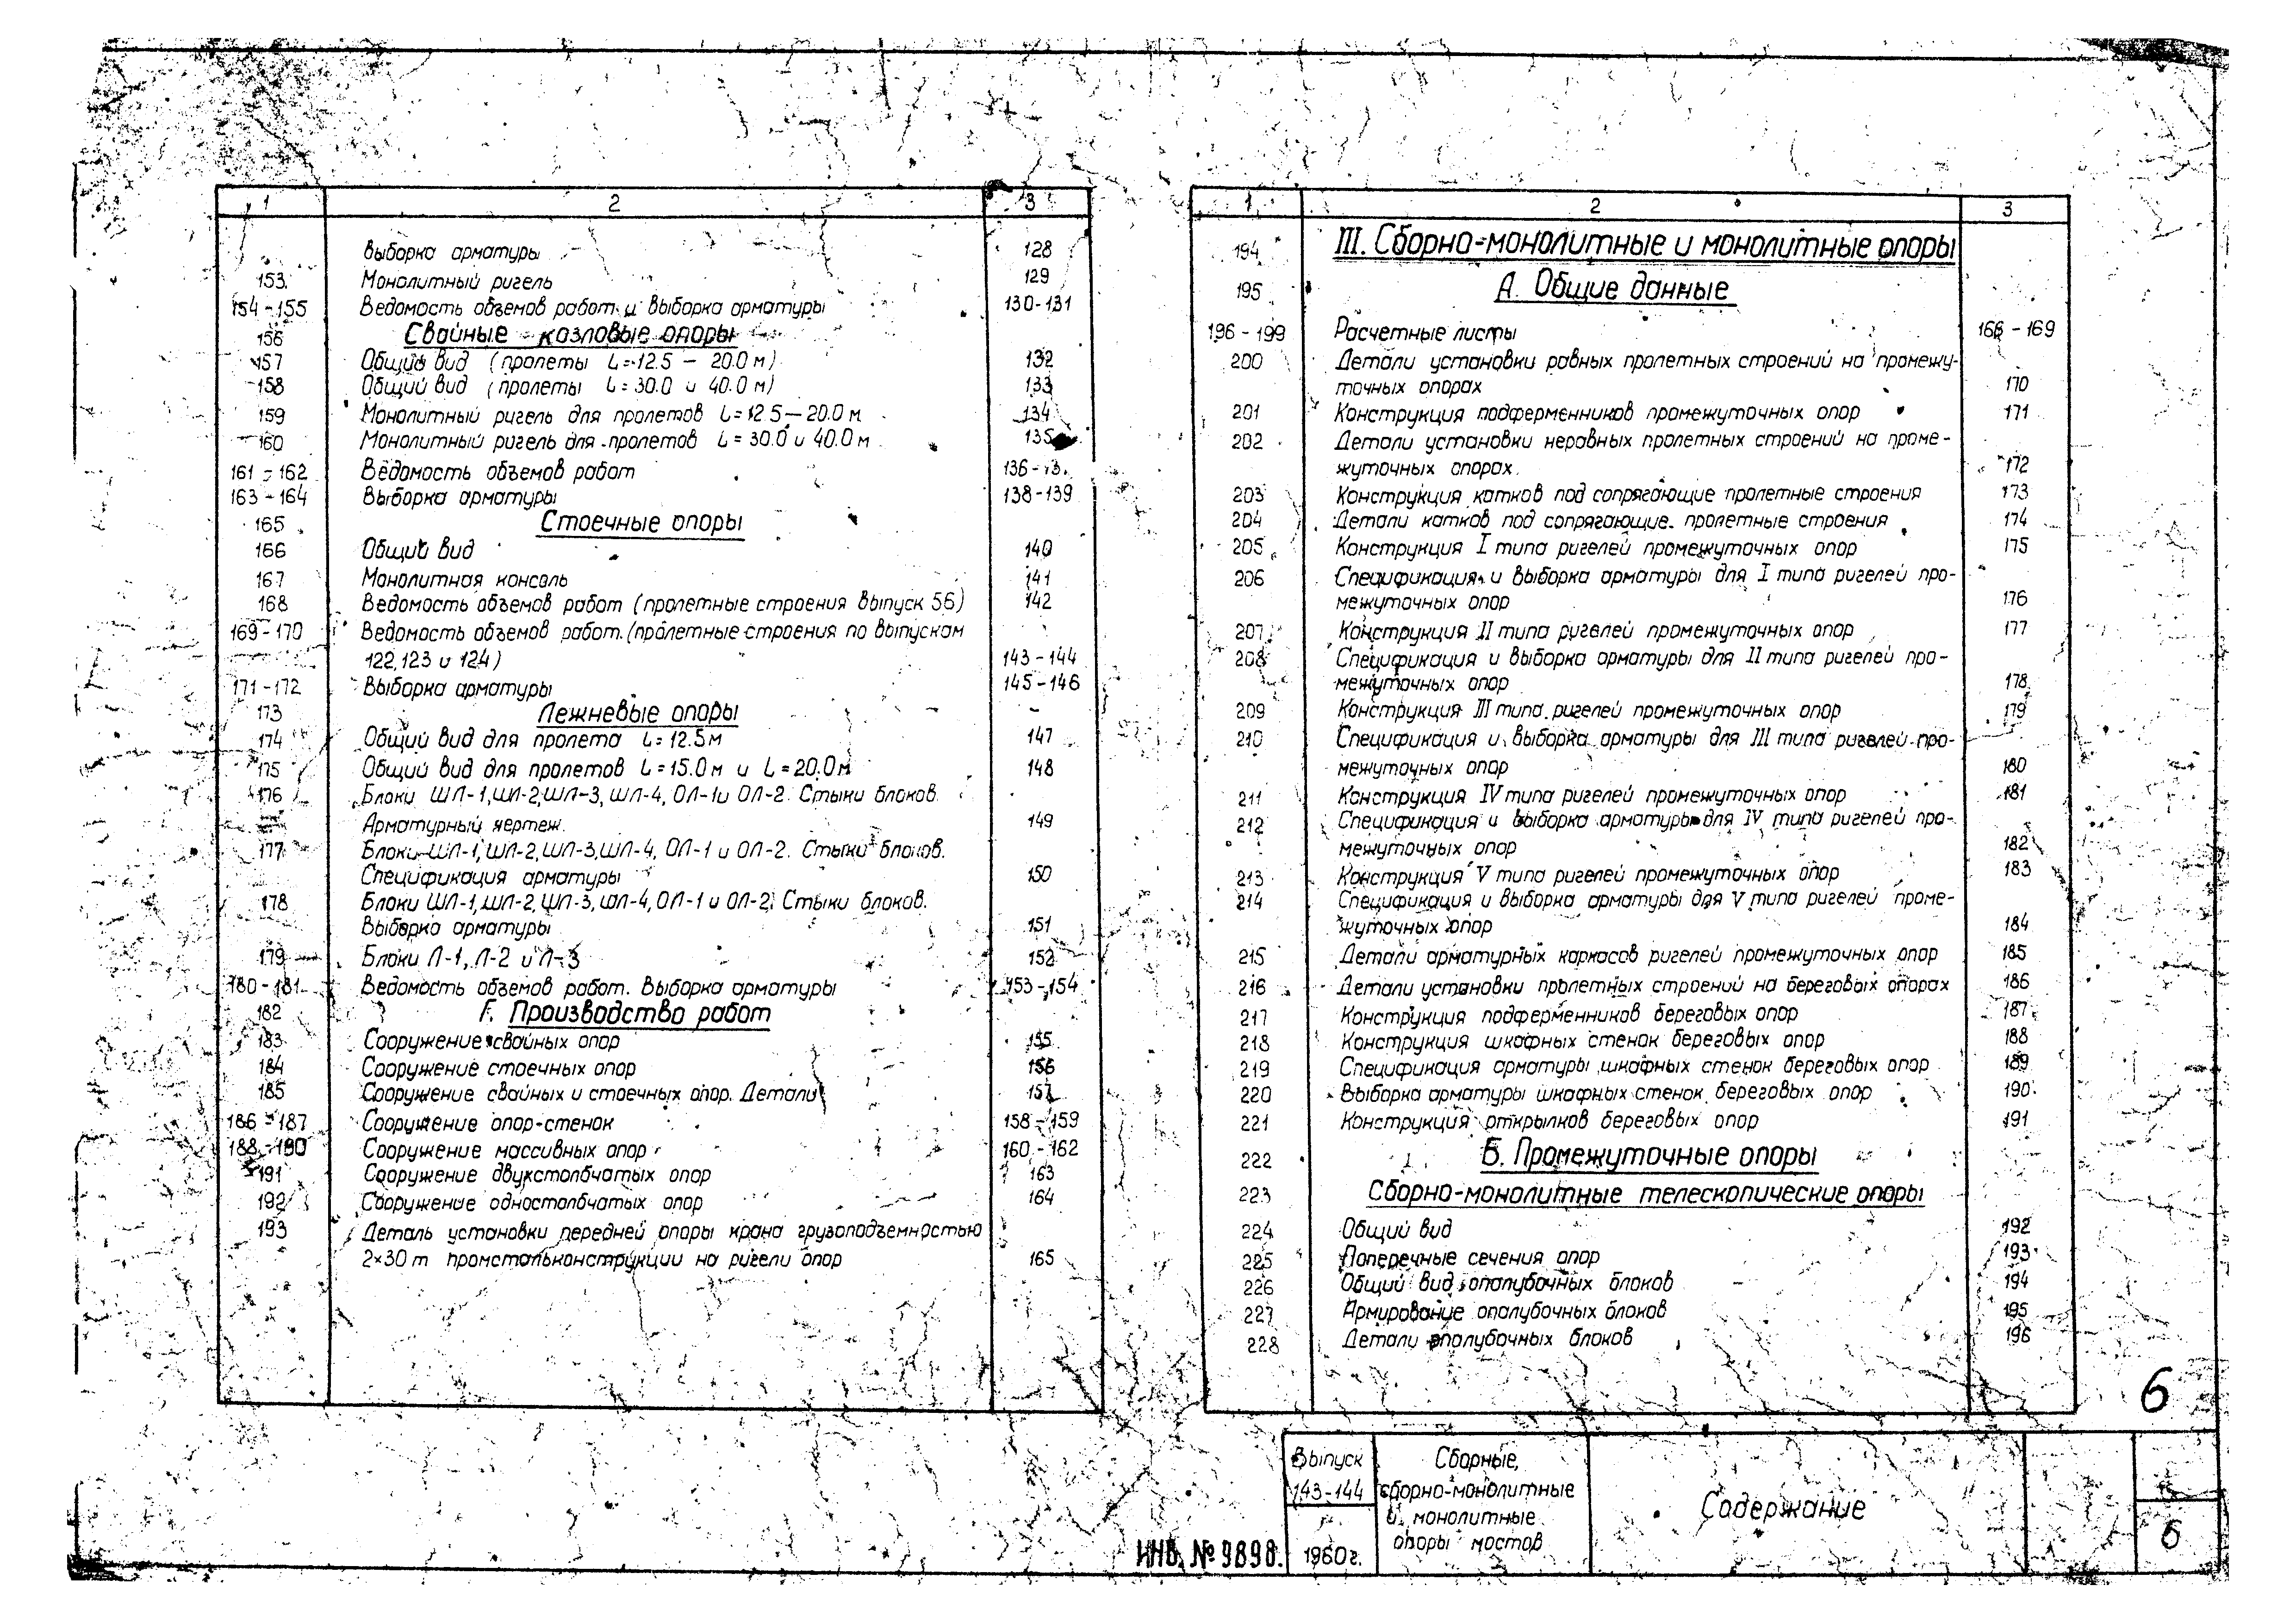 1 2 3
Выборка арматуры 128
153 Монолитный ригель 129
154-155 Ведомость объемов работ и выборка арматуры 130-131
156 Свайные козловые опоры
157 Общий вид (пролеты L=12.5 – 20.0 м) 132
158 Общий вид (пролеты L=30.0 и 40.0 м) 133
159 Монолитный ригель для пролетов L=12.5–20.0 м 134
160 Монолитный ригель для пролетов L=30.0 и 40.0 м 135
161-162 Ведомость объемов работ 136-13
163-164 Выборка арматуры 138-139
165 Стоечные опоры
166 Общий вид 140
167 Монолитная консоль 141
168 Ведомость объемов работ (пролетные строения выпуск 56) 142
169-170 Ведомость объемов работ (пролетные строения по выпускам
122, 123 и 124) 143-144
171-172 Выборка арматуры 145-146
173 Лежневые опоры
174 Общий вид для пролета L=12.5 м 147
175 Общий вид для пролетов L=15.0 м и L=20.0 м 148
176 Блоки ШЛ-1, ШЛ-2, ШЛ-3, ШЛ-4, ОЛ-1 и ОЛ-2. Стыки блоков.
Арматурный чертеж. 149
177 Блоки ШЛ-1, ШЛ-2, ШЛ-3, ШЛ-4, ОЛ-1 и ОЛ-2. Стыки блоков.
Спецификация арматуры 150
178 Блоки ШЛ-1, ШЛ-2, ШЛ-3, ШЛ-4, ОЛ-1 и ОЛ-2. Стыки блоков.
Выборка арматуры 151
179 Блоки Л-1, Л-2 и Л-3 152
180-181 Ведомость объемов работ. Выборка арматуры 153-154
182 Г. Производство работ
183 Сооружение свайных опор 155
184 Сооружение стоечных опор 156
185 Сооружение свайных и стоечных опор. Детали 157
186-187 Сооружение опор-стенок 158-159
188-190 Сооружение массивных опор 160-162
191 Сооружение двухстолбчатых опор 163
192 Сооружение одностолбчатых опор 164
193 Деталь установки передней опоры крана грузоподъемностью
2×30 т промстальконструкции на ригели опор 165
1 2 3
194 III. Сборно-монолитные и монолитные опоры
195 А. Общие данные
196-199 Расчетные листы 166-169
200 Детали установки равных пролетных строений на промежу-
точных опорах 170
201 Конструкция подферменников промежуточных опор 171
202 Детали установки неравных пролетных строений на проме-
жуточных опорах. 172
203 Конструкция катков под сопрягающие пролетные строения 173
204 Детали катков под сопрягающие пролетные строения 174
205 Конструкция I типа ригелей промежуточных опор 175
206 Спецификация и выборка арматуры для I типа ригелей про-
межуточных опор 176
207 Конструкция II типа ригелей промежуточных опор 177
208 Спецификация и выборка арматуры для II типа ригелей про-
межуточных опор 178
209 Конструкция III типа ригелей промежуточных опор 179
210 Спецификация и выборка арматуры для III типа ригелей про-
межуточных опор 180
211 Конструкция IV типа ригелей промежуточных опор 181
212 Спецификация и выборка арматуры для IV типа ригелей про-
межуточных опор 182
213 Конструкция V типа ригелей промежуточных опор 183
214 Спецификация и выборка арматуры для V типа ригелей проме-
жуточных опор 184
215 Детали арматурных каркасов ригелей промежуточных опор 185
216 Детали установки пролетных строений на береговых опорах 186
217 Конструкция подферменников береговых опор 187
218 Конструкция шкафных стенок береговых опор 188
219 Спецификация арматуры шкафных стенок береговых опор 189
220 Выборка арматуры шкафных стенок береговых опор 190
221 Конструкция открылков береговых опор 191
222 Б. Промежуточные опоры
223 Сборно-монолитные телескопические опоры
224 Общий вид 192
225 Поперечные сечения опор 193
226 Общий вид опалубочных блоков 194
227 Армирование опалубочных блоков 195
228 Детали опалубочных блоков 196
6
Выпуск
143-144
1960 г.
Сборные,
сборно-монолитные
и монолитные
опоры мостов
Содержание
6
ИНВ. № 9898.